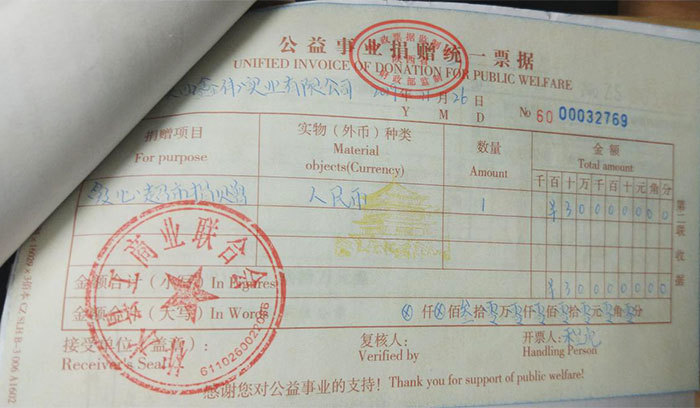 公益事业捐赠统一票据
UNIFIED INVOICE OF DONATION FOR PUBLIC WELFARE
实业有限公司 26日
Y M D
№ 60 00032769
捐赠项目
For purpose
实物（外币）种类
Material
objects(Currency)
数量
Amount
金额
Total amount
千百十万千百十元角分
爱心超市捐赠 人民币 1 ¥30000000
金额合计（小写）In Figures ¥30000000
金额合计（大写）In Words ⊗仟⊗佰叁拾零万零仟零佰零拾零元零角零分
接受单位（盖章）:
Receiver's Seal
复核人:
Verified by
开票人:
Handling Person
感谢您对公益事业的支持! Thank you for support of public welfare!
第二联 收据
工商业联合会
6110260020966
财政部监制